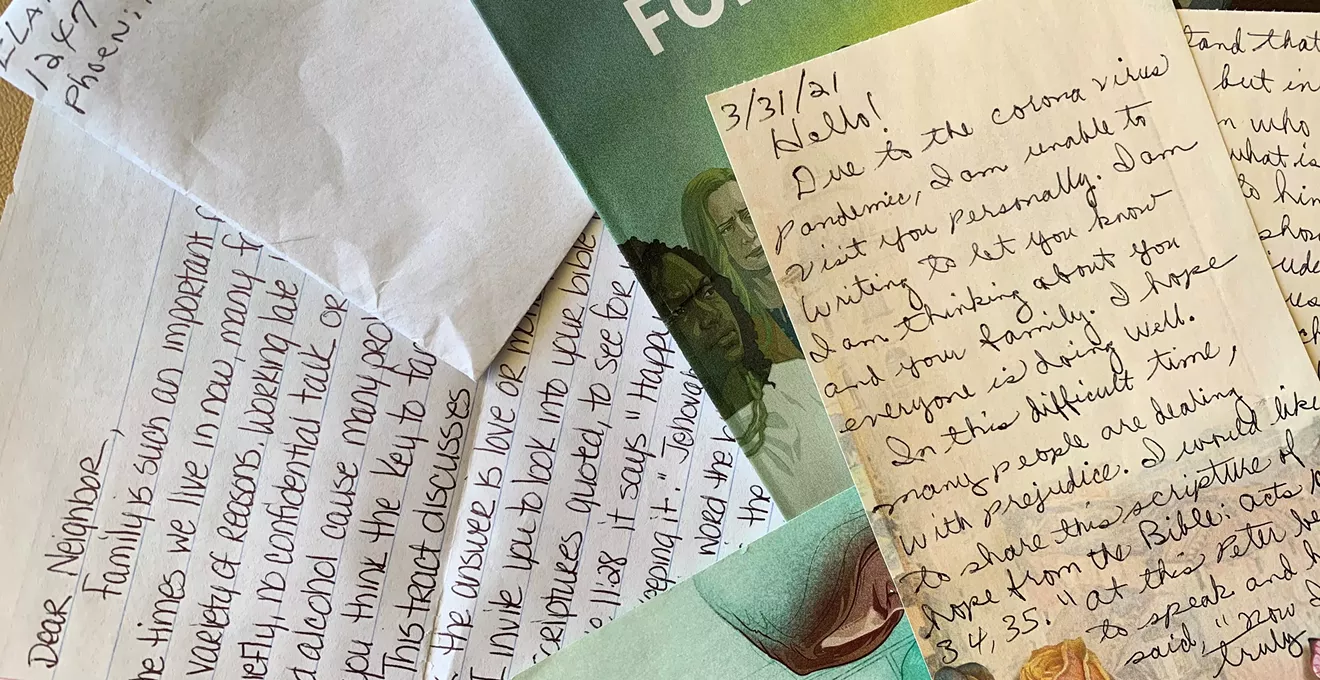 1247
Phoeni
Dear Neighbor,
Family is such an important
he times we live in now, many
variety of reasons. Working late
no confidential talk or
alcohol cause many
you think the key to
This tract discusses
the answer is love or
I invite you to look into your bible
scriptures quoted, to see for
11:28 it says "Happy
eeping it." Jehova
word the
the
FO
3/31/21
Hello!
Due to the corona virus
pandemic, I am unable to
visit you personally. I am
writing to let you know
I am thinking about you
and your family. I hope
everyone is doing well.
In this difficult time,
many people are dealing
with prejudice. I would like
to share this scripture of
hope from the Bible: acts
34,35. "at this Peter
to speak and
said, "now I
truly
tand that
but in
who
what is
to him